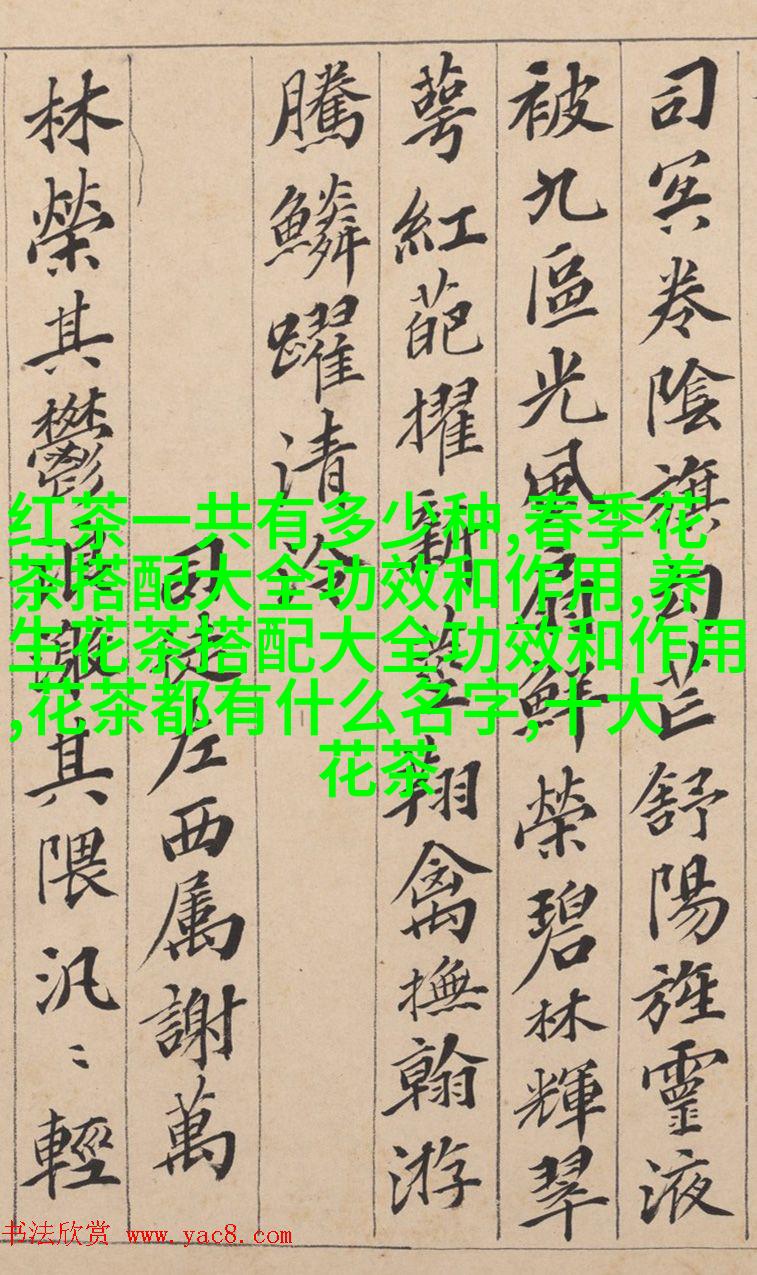 司冥卷陰旗句芒舒陽旌靈液
被九區光風扇鮮榮碧林輝翠
萼紅葩擢新莖翔禽撫翰游
騰鱗躍清泠
司徒左西属謝萬
林榮其鬱浪激其隈汎〻輕
红茶一共有多少种,春季花
茶搭配大全功效和作用,养
生花茶搭配大全功效和作用
,花茶都有什么名字,十大
花茶
书法欣赏 www.yac8.com